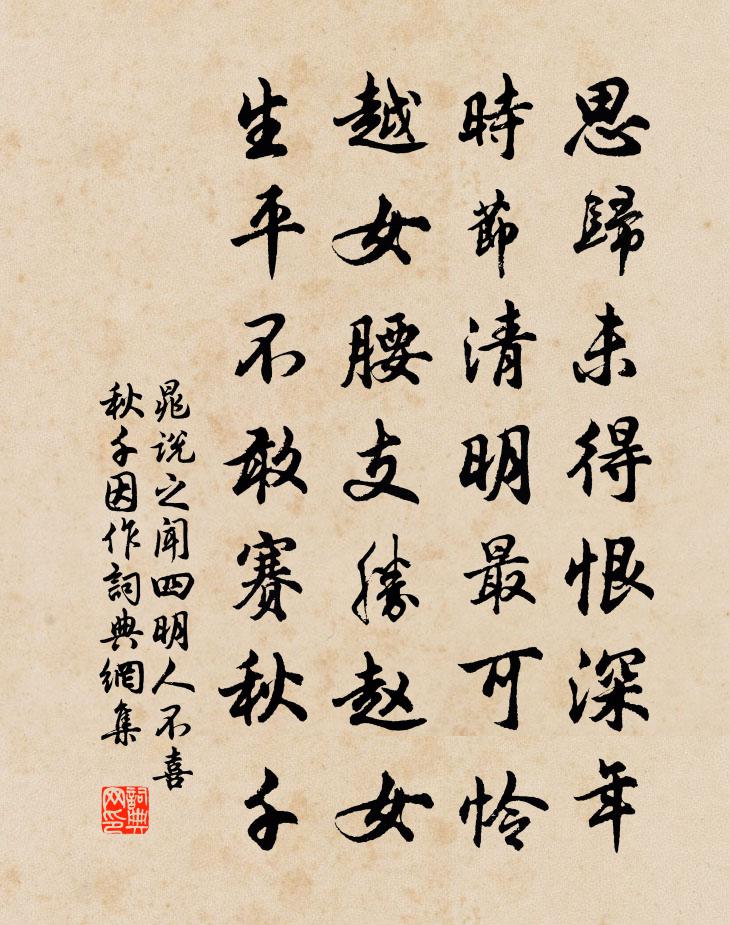 思歸未得恨深年
時節清明最可憐
越女腰支勝赵女
生平不敢賽秋千
晁說之聞四明人不喜
秋千因作詞典網集
詞典网印